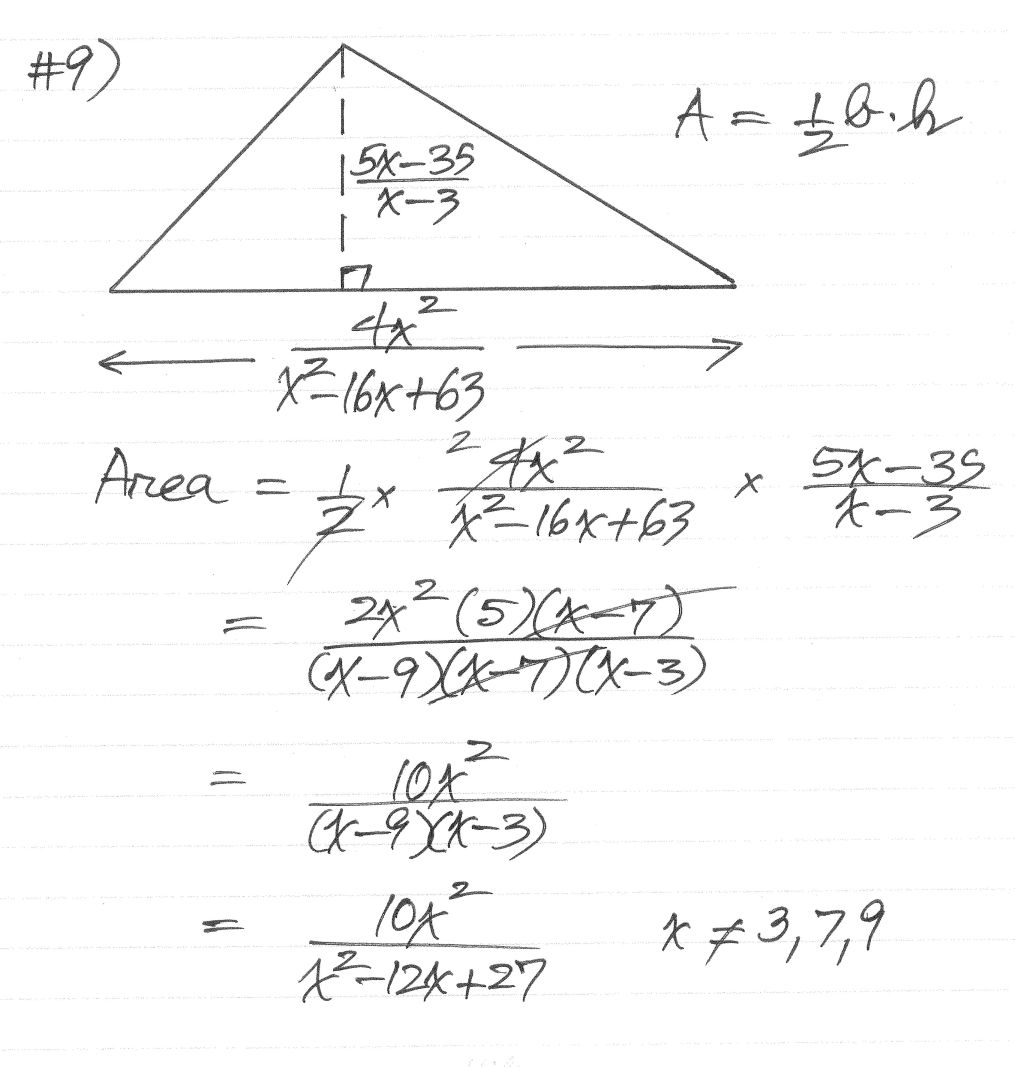 #9)
A = 1/2 b·h
5x-35/x-3
4x²/x²-16x+63
Area = 1/2 × ² 4x²/x²-16x+63 × 5x-35/x-3
= 2x²(5)(x-7)/(x-9)(x-7)(x-3)
= 10x²/(x-9)(x-3)
= 10x²/x²-12x+27 x ≠ 3,7,9